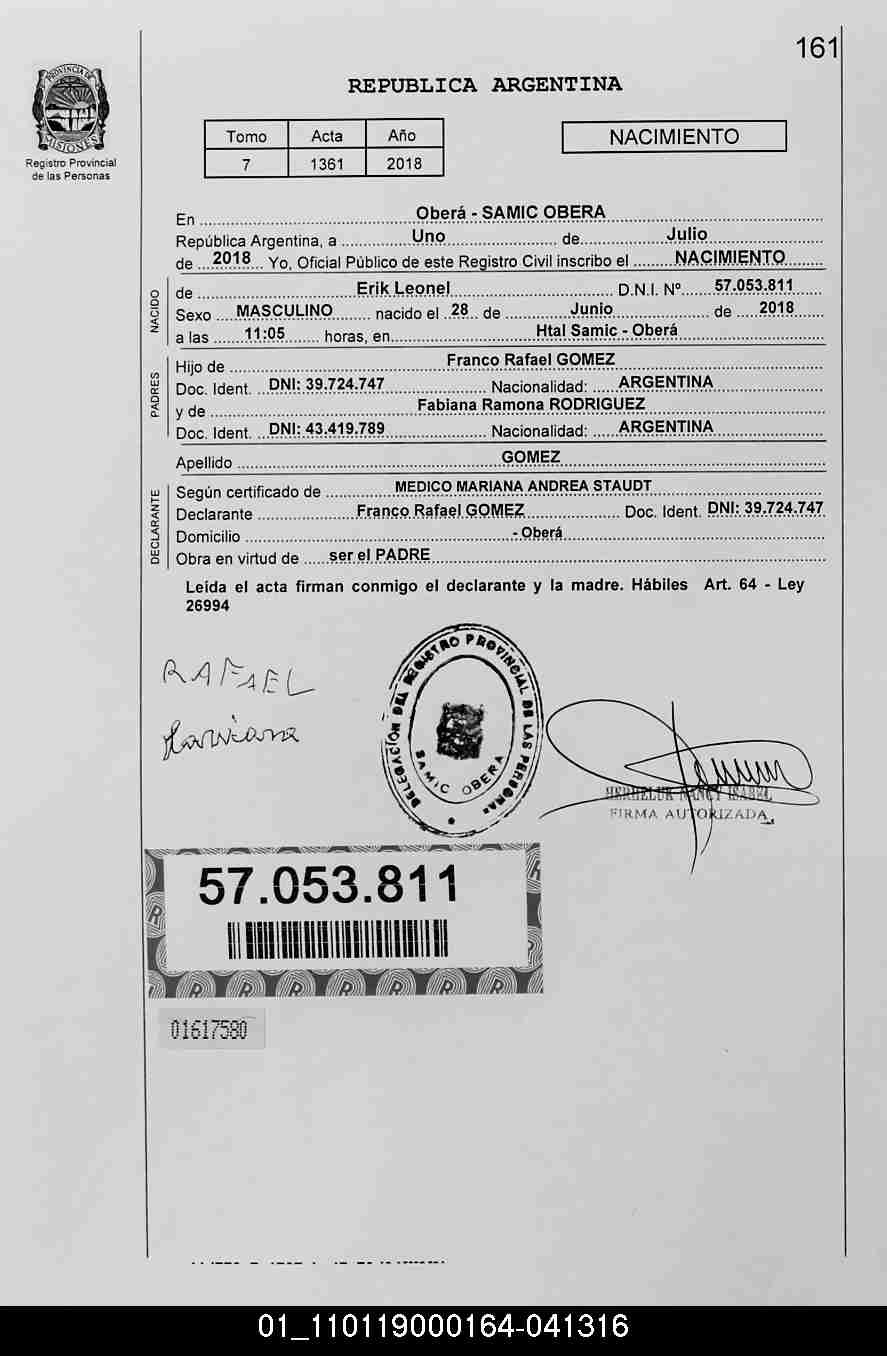 161
PROVINCIA DE
MISIONES
Registro Provincial
de las Personas
REPUBLICA ARGENTINA
Tomo Acta Año
7 1361 2018
NACIMIENTO
En Oberá - SAMIC OBERA
República Argentina, a Uno de Julio
de 2018 Yo, Oficial Público de este Registro Civil inscribo el NACIMIENTO
NACIDO
de Erik Leonel D.N.I. Nº 57.053.811
Sexo MASCULINO nacido el 28 de Junio de 2018
a las 11:05 horas, en Htal Samic - Oberá
PADRES
Hijo de Franco Rafael GOMEZ
Doc. Ident. DNI: 39.724.747 Nacionalidad: ARGENTINA
y de Fabiana Ramona RODRIGUEZ
Doc. Ident. DNI: 43.419.789 Nacionalidad: ARGENTINA
Apellido GOMEZ
DECLARANTE
Según certificado de MEDICO MARIANA ANDREA STAUDT
Declarante Franco Rafael GOMEZ Doc. Ident. DNI: 39.724.747
Domicilio - Oberá
Obra en virtud de ser el PADRE
Leída el acta firman conmigo el declarante y la madre. Hábiles Art. 64 - Ley
26994
RAFAEL
DELEGACIÓN DEL REGISTRO PROVINCIAL DE LAS PERSONAS
SAMIC OBERA
NANCY ISABEL
FIRMA AUTORIZADA
57.053.811
01617580
01_110119000164-041316